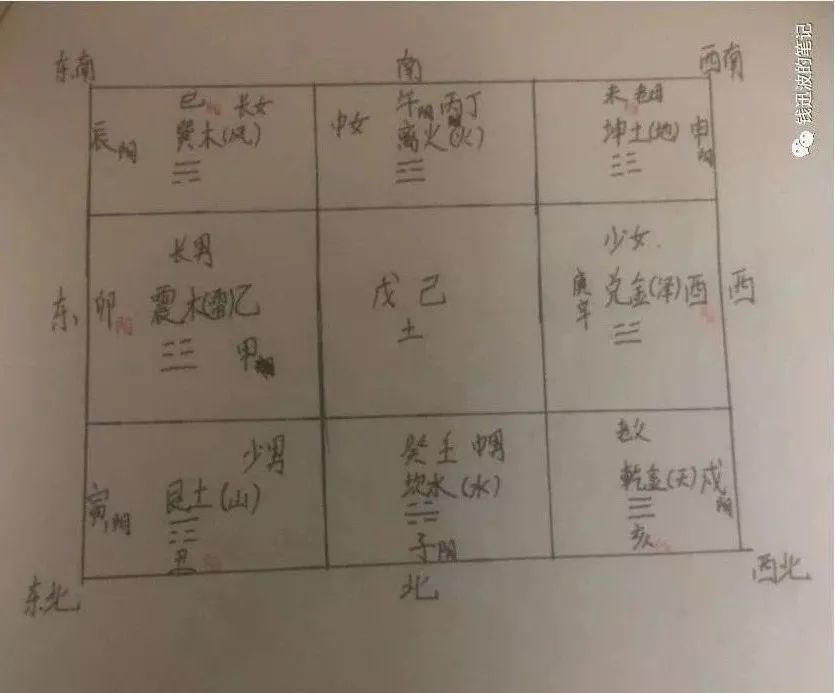 东南
南
西南
巳 阴 长女
辰 阳
巽木(风)
午 阳 丙丁
中女
离火(火)
未 阴 老母
坤土(地) 申 阳
东
卯 阴
长男
震木(雷)乙
甲
戊己
土
少女
庚辛
兑金(泽)酉
西
少男
寅 阳
艮土(山)
丑
癸壬 中男
坎水(水)
子阳
老父
乾金(天)戌
阳
亥
东北
北
西北
钱迅波的笔记